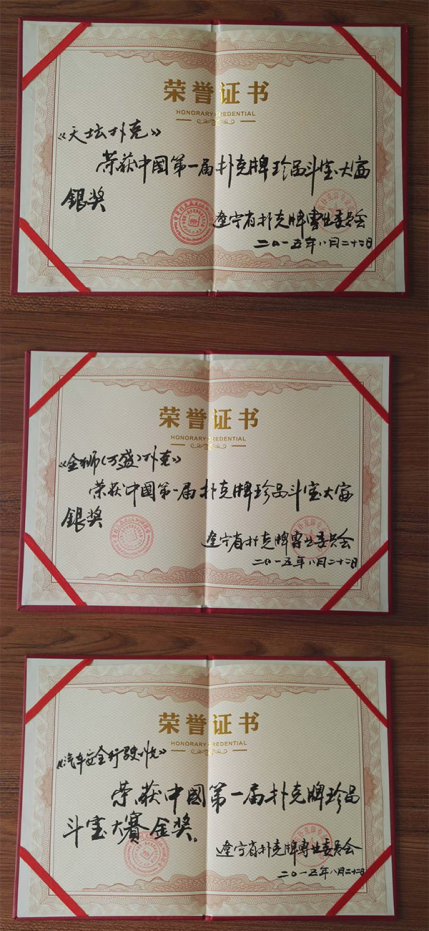 荣誉证书
HONORARY CREDENTIAL
《天坛扑克》
荣获中国第一届扑克牌珍品斗宝大赛
银奖
辽宁省扑克牌专业委员会
二〇一五年八月二十二日
荣誉证书
HONORARY CREDENTIAL
《金狮(万盛)扑克》
荣获中国第一届扑克牌珍品斗宝大赛
银奖
辽宁省扑克牌专业委员会
二〇一五年八月二十二日
荣誉证书
HONORARY CREDENTIAL
《汽车安全行驶
荣获中国第一届扑克牌珍品
斗宝大赛金奖。
辽宁省扑克牌专业委员会
二〇一五年八月二十二日